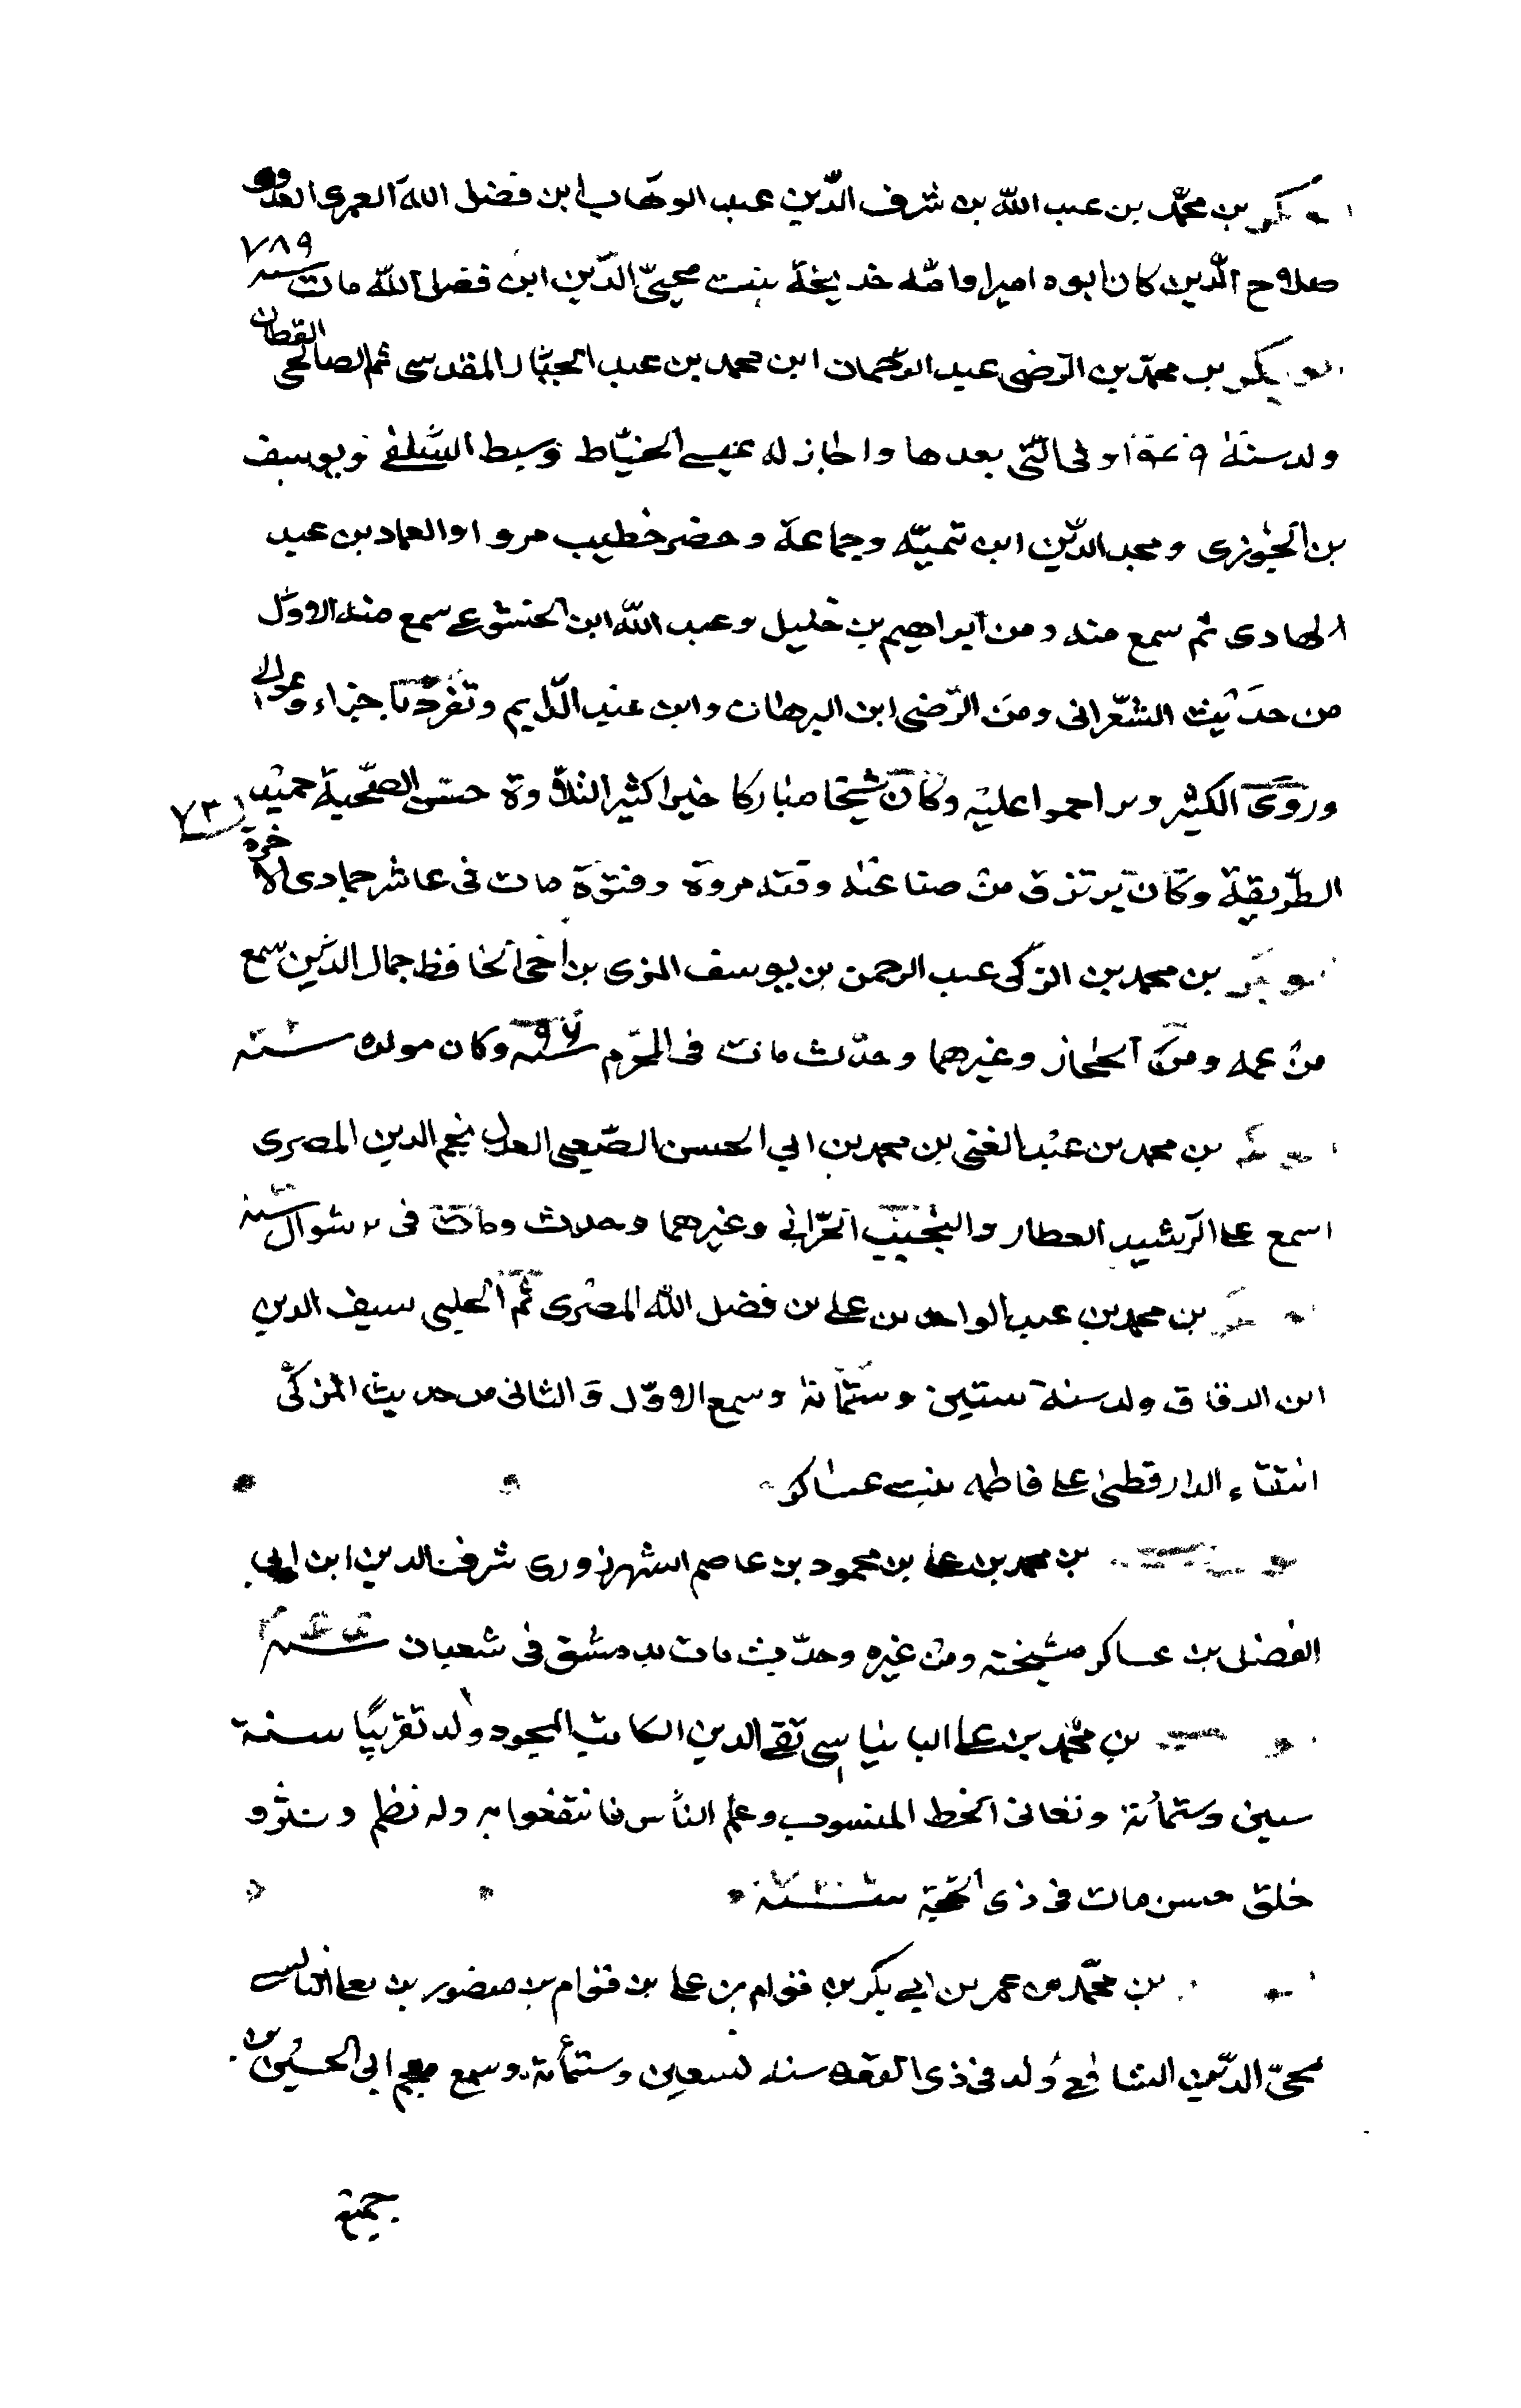 بكر بن محمد بن عبد الله بن شرف الدين عبد الوهاب ابن فضل الله العمرى العدوى
صلاح الدين كان ابوه اميرا وامّه خديجة بنت محيىّ الدّين ابن فضل الله مات سنة ٧٨٩
بكر بن محمّد بن الرّضى عبد الرحمان ابن محمد بن عبد الجبّار المقدسى ثم الصالحى القطان
ولد سنة او فى التّى بعدها واجاز له عيسى الخيّاط وسبط السّلفى ويوسف
بن الجوزى ومجد الدّين ابن تيميّه وجماعة وحضر خطيب مردا والعماد بن عبد
الهادى ثم سمع منه ومن ابراهيم بن خليل وعبد الله ابن الخشوعى سمع منه الاوّل
من حديث الشّعرانى ومن الرّضى ابن البرهان وابن عبد الدّايم وتفرّد باجزاء وعوالى
وروى الكثير وتراحموا عليه وكان شيخا مباركا خيرا كثير التلاوة حسن الصّحبة حميد
الطّريقة وكان يرتزق من صناعته وفيه مروة وفتوّة مات فى عاشر جمادى الاخرة ٧٣١
بن محمد بن الزكى عبد الرحمن بن يوسف المزى بن اخى الحافظ جمال الدّين سمع
من عمه ومن الحجاز وغيرهما وحدّث مات فى المحرّم سنة وكان مولده سنة
بن محمد بن عبد الغنى بن محمد بن ابي الحسن الصّعبى العدل نجم الدين المصرى
اسمع على الرّشيد العطار والنّجيب الحرّانى وغيرهما وحدث ومات فى ٢ شوال سنة
بن محمد بن عبد الواحد بن على بن فضل الله المصرى ثم الحلبى سيف الدين
ابن الدقاق ولد سنة ستين وستّمائة وسمع الاوّل والثانى من حديث المزكّى
انتقاء الدارقطنى على فاطمه بنت عساكر
بن محمد بن على بن محمود بن عاصم الشهرزورى شرف الدين ابن ابى
الفضل بن عساكر مشيخته ومن غيره وحدّث مات بدمشق فى شعبان سنة
بن محمّد بن على البانياسى تقى الدين الكاتب المجود ولد تقريبًا سنة
ستين وستمائة وتعانى الخط المنسوب وعلّم النّاس فانتفعوا به وله نظم ونثر و
خلق حسن مات فى ذى الحجة سنة
بن محمّد بن عمر بن ابى بكر بن قوام بن على بن قوام بن منصور بن معلا البالسى
محىّ الدّين الشافعى وُلد فى ذى القعده سنه تسعين وستمأئة وسمع معجم ابى الحسين بن
جميع